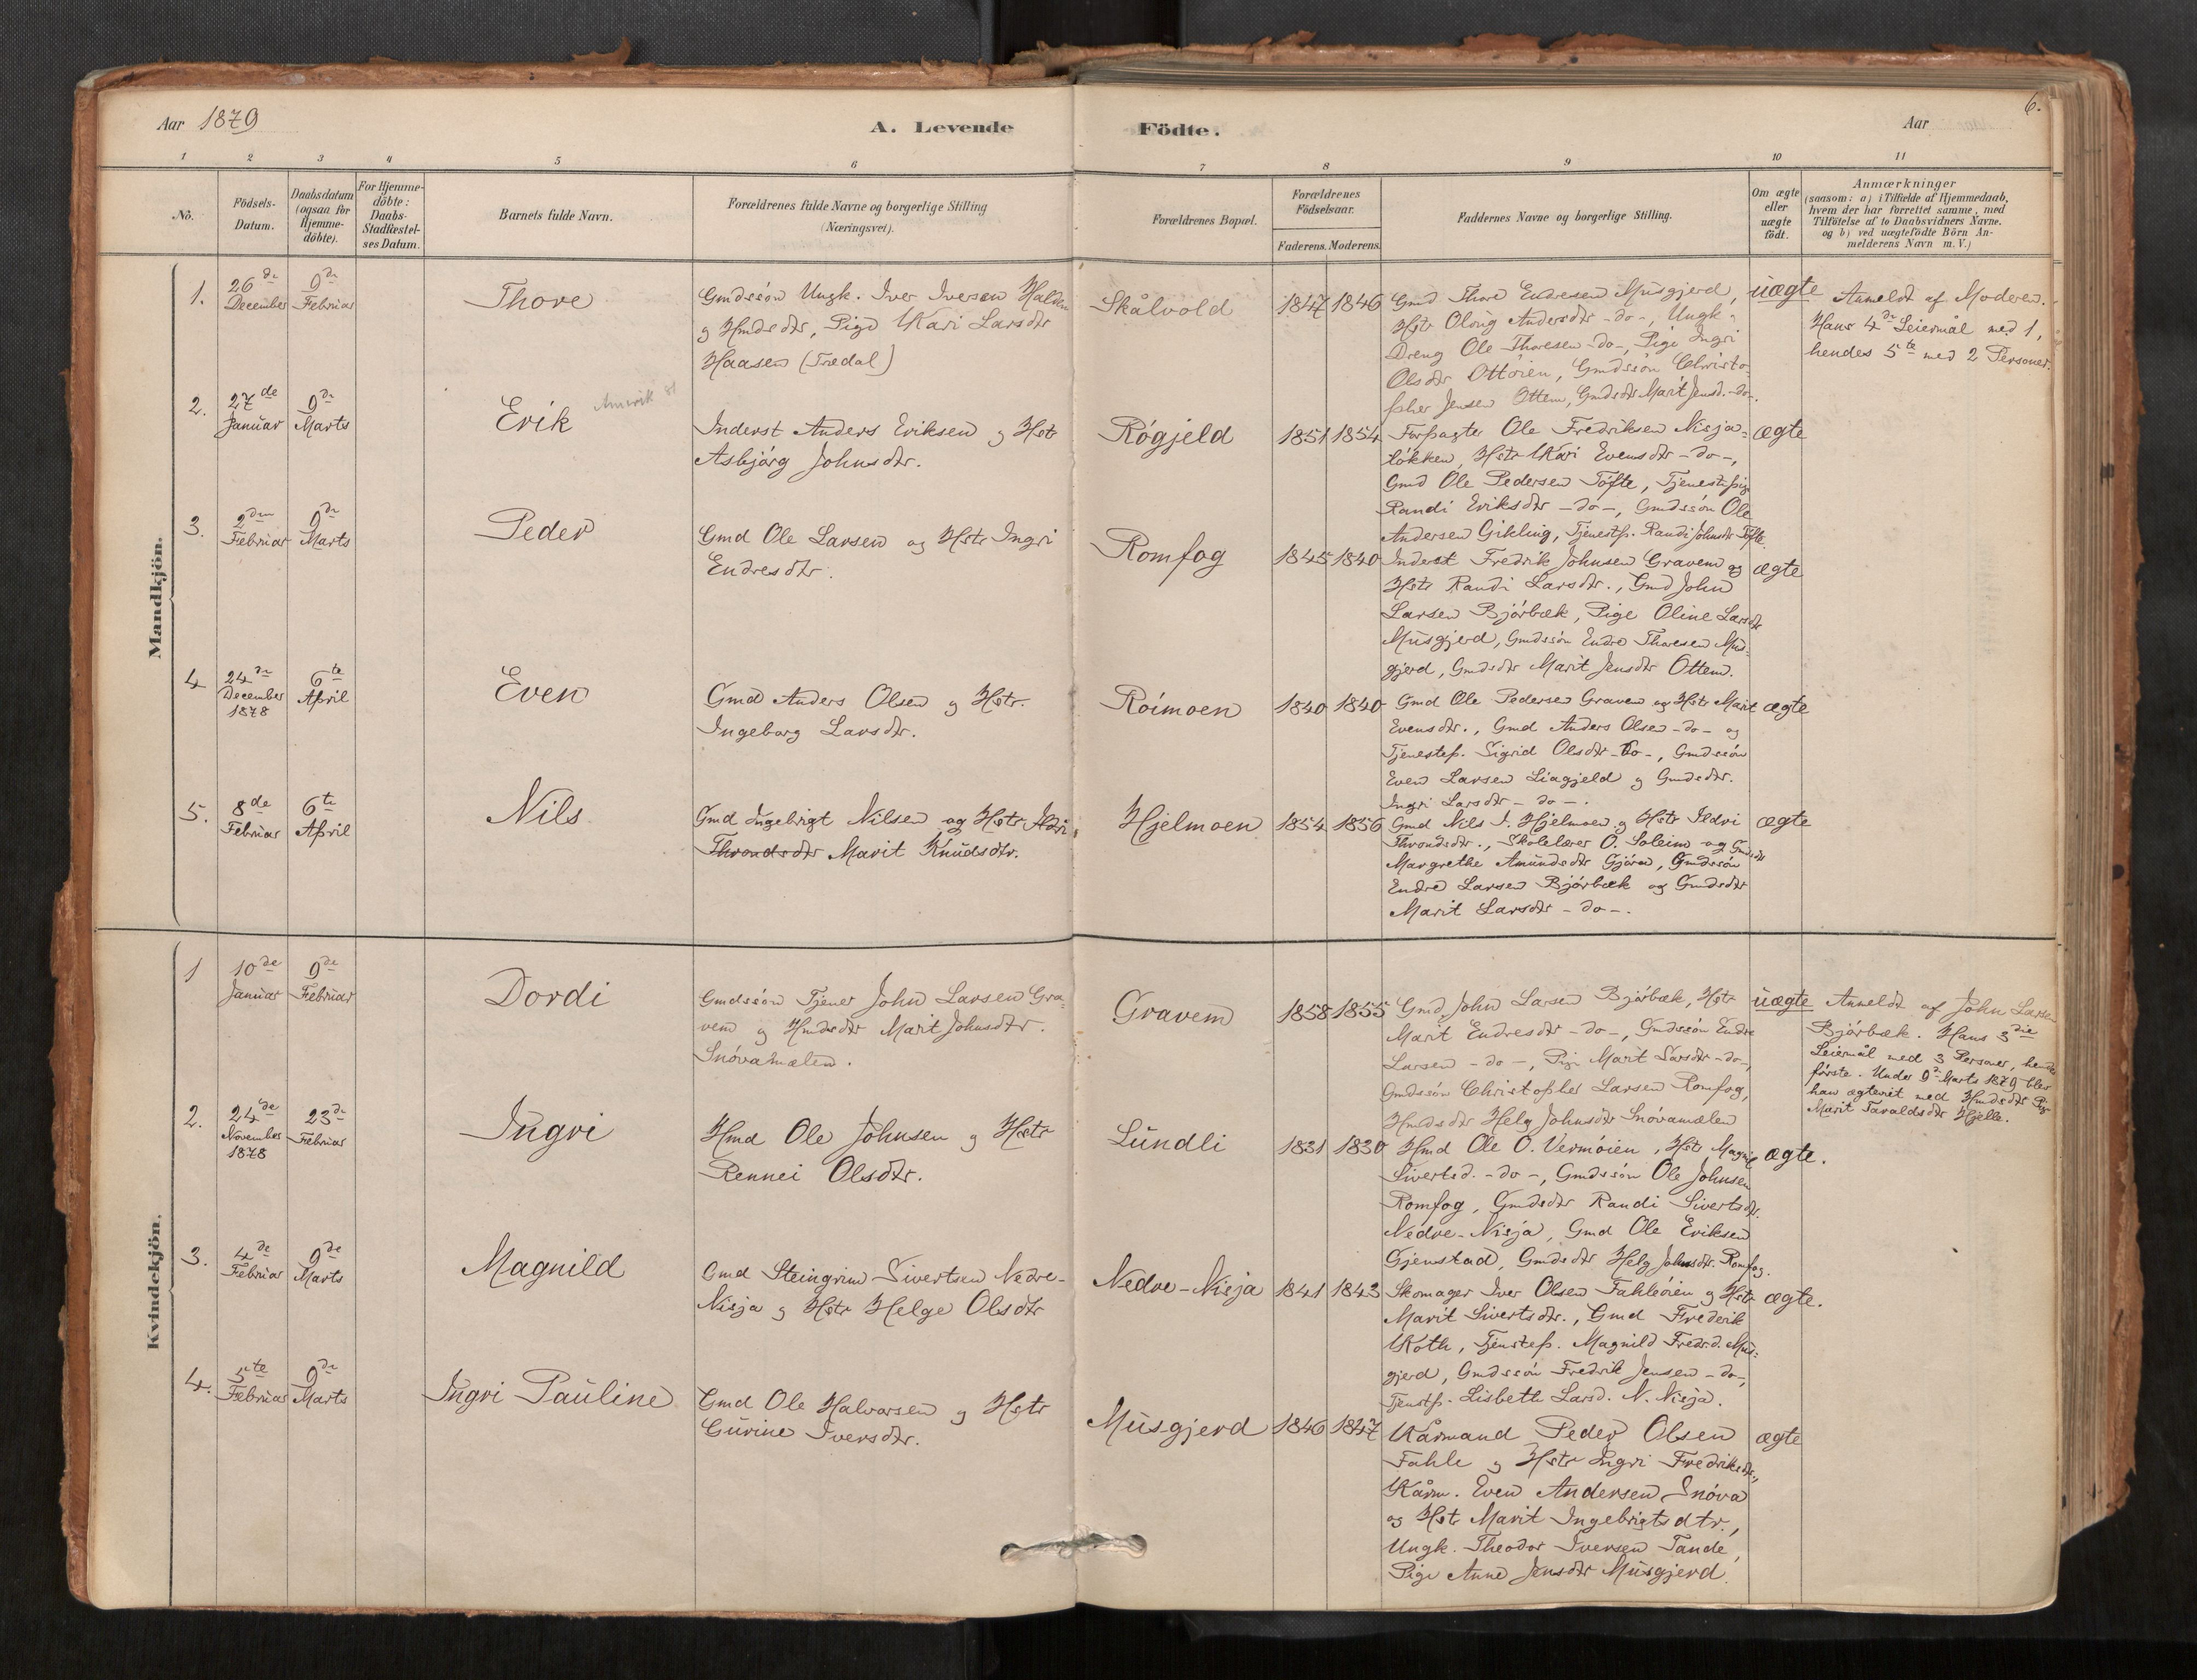 6.
Aar 1879
A. Levende
Födte.
Aar
1
2
3
4
5
6
7
8
9
10
11
No.
Födsels-
Datum.
Daabsdatum
(ogsaa for
Hjemme-
döbte).
For Hjemme-
döbte:
Daabs-
Stadfæstel-
ses Datum.
Barnets fulde Navn.
Forældrenes fulde Navne og borgerlige Stilling
(Næringsvei).
Forældrenes Bopæl.
Forældrenes
Födselsaar.
Faderens. Moderens.
Faddernes Navne og borgerlige Stilling.
Om ægte
eller
uægte
født.
Anmærkninger
(saasom: a) i Tilfælde af Hjemmedaab,
hvem der har forrettet samme, med
Tilföielse af to Daabsvidners Navne.
og b) ved uægtefödte Börn An-
melderens Navn m. V.)
Mandkjön.
1.
26de
December
9de
Februar
Thore
Gmdssön Ungk. Iver Iversen Halden
og Hmdsdtr, Pige Kari Larsdtr
Haasen (Tredal)
Skålvold
1847
1846
Gmd Thore Endresen Musgjerd,
Hstr Oloug Andersdtr -do-, Ungk.
Dreng Ole Thoresen -do-, Pige Ingri
Olsdtr Ottöien, Gmdssön Christo-
pher Jensen Ottem, Gmdsdtr Marit Jensd. -do-.
uægte
Anmeldt af Moderen.
Hans 4de Leiermål med 1,
hendes 5te med 2 Personer.
2.
27de
Januar
9de
Marts
Erik
Amerik 81
Inderst Anders Eriksen og Hstr
Asbjörg Johnsdtr.
Rögjeld
1851
1854
Forpagter Ole Fredriksen Nisja-
lökken, Hstr Kari Evensdtr -do-,
Gmd Ole Pedersen Töfte, Tjenestepig
Randi Eriksdtr -do-, Gmdssön Ole
Andersen Gikling, Tjenestp. Randi Johnsdtr Töfte.
ægte
3.
2den
Februar
9de
Marts
Peder
Gmd Ole Larsen og Hstr Ingri
Endresdtr.
Romfog
1845
1840
Inderst Fredrik Johnsen Gravem og
Hstr Randi Larsdtr., Gmd John
Larsen Björbæk, Pige Oline Larsdtr
Musgjerd, Gmdssön Endre Thoresen Mus-
gjerd, Gmdsdtr Marit Jensdtr Ottem.
ægte
4
24de
December
1878
6te
April
Even
Gmd Anders Olsen og Hstr.
Ingeborg Larsdtr.
Röimoen
1840
1840
Gmd Ole Pedersen Gravem og Hstr Marit
Evensdtr., Gmd Anders Olsen -do- og
Tjenestep. Sigrid Olsdtr -do-, Gmdssön
Even Larsen Liagjeld og Gmdsdtr.
Ingri Larsdtr -do-.
ægte
5.
8de
Februar
6te
April
Nils
Gmd Ingebrigt Nilsen og Hstr Ildri
Throndsdtr Marit Knudsdtr.
Hjelmoen
1854
1856
Gmd Nils I. Hjelmoen og Hstr Ildri
Throndsdtr., Skolelærer O. Soleim og Gmdsdtr
Margrethe Amundsdtr Gjöra, Gmdssön
Endre Larsen Bjørbæk og Gmdsdtr
Marit Larsdtr -do-.
ægte
Kvindekjön.
1
10de
Januar
9de
Februar
Dordi
Gmdssön Tjener John Larsen Gra-
vem og Hmdsdtr Marit Johnsdtr.
Snövamælen.
Gravem
1858
1855
Gmd John Larsen Björbæk, Hstr
Marit Endresdtr -do-, Gmdssön Endre
Larsen -do-, Pige Marit Larsdtr -do-,
Gmdssön Christopher Larsen Romfog,
Hmdsdtr Helg Johnsdtr Snövamælen
uægte
Anmeldt af John Larsen
Bjørbæk. Hans 3die
Leiermål med 3 Personer, hendes
förste. Under 9de Marts 1879 blev
han ægteviet med Hmdsdtr Pig
Marit Taraldsdtr Hjelle.
2.
24de
November
1878
23de
Februar
Ingri
Hmd Ole Johnsen og Hstr
Rennei Olsdtr.
Lundli
1831
1830
Hmd Ole O. Vermöien, Hstr Magnil
Sivertsd. -do-, Gmdssön Ole Johnsen
Romfog, Gmdsdtr Randi Sivertsdtr.
Nedre-Nisja, Gmd Ole Eriksen
Gjenstad, Gmdsdtr Helg Johnsdtr. Romfog.
ægte.
3.
4de
Februar
9de
Marts
Magnild
Gmd Steingrim Sivertsen Nedre-
Nisja og Hstr Helge Olsdtr
Nedre-Nisja
1841
1843
Skomager Iver Olsen Fahleöien og Hstr
Marit Sivertsdtr., Gmd Frederik
Koth, Tjenstep. Magnild Fredrd. Mus-
gjerd, Gmdssön Fredrik Jensen -do-,
Tjenstp. Lisbeth Larsd. N. Nisja.
ægte.
4.
5te
Februar
9de
Marts
Ingri Pauline
Gmd Ole Halvorsen og Hstr
Gurine Iversdtr.
Musgjerd
1846
1847
Kårmand Peder Olsen
Fahle og Hstr Ingri Fredriksdtr.,
Kårm. Even Andersen Snöva
og Hstr Marit Ingebrigtsdtr.,
Ungk. Theodor Iversen Tande,
Pige Anne Jensdtr Musgjerd.
ægte